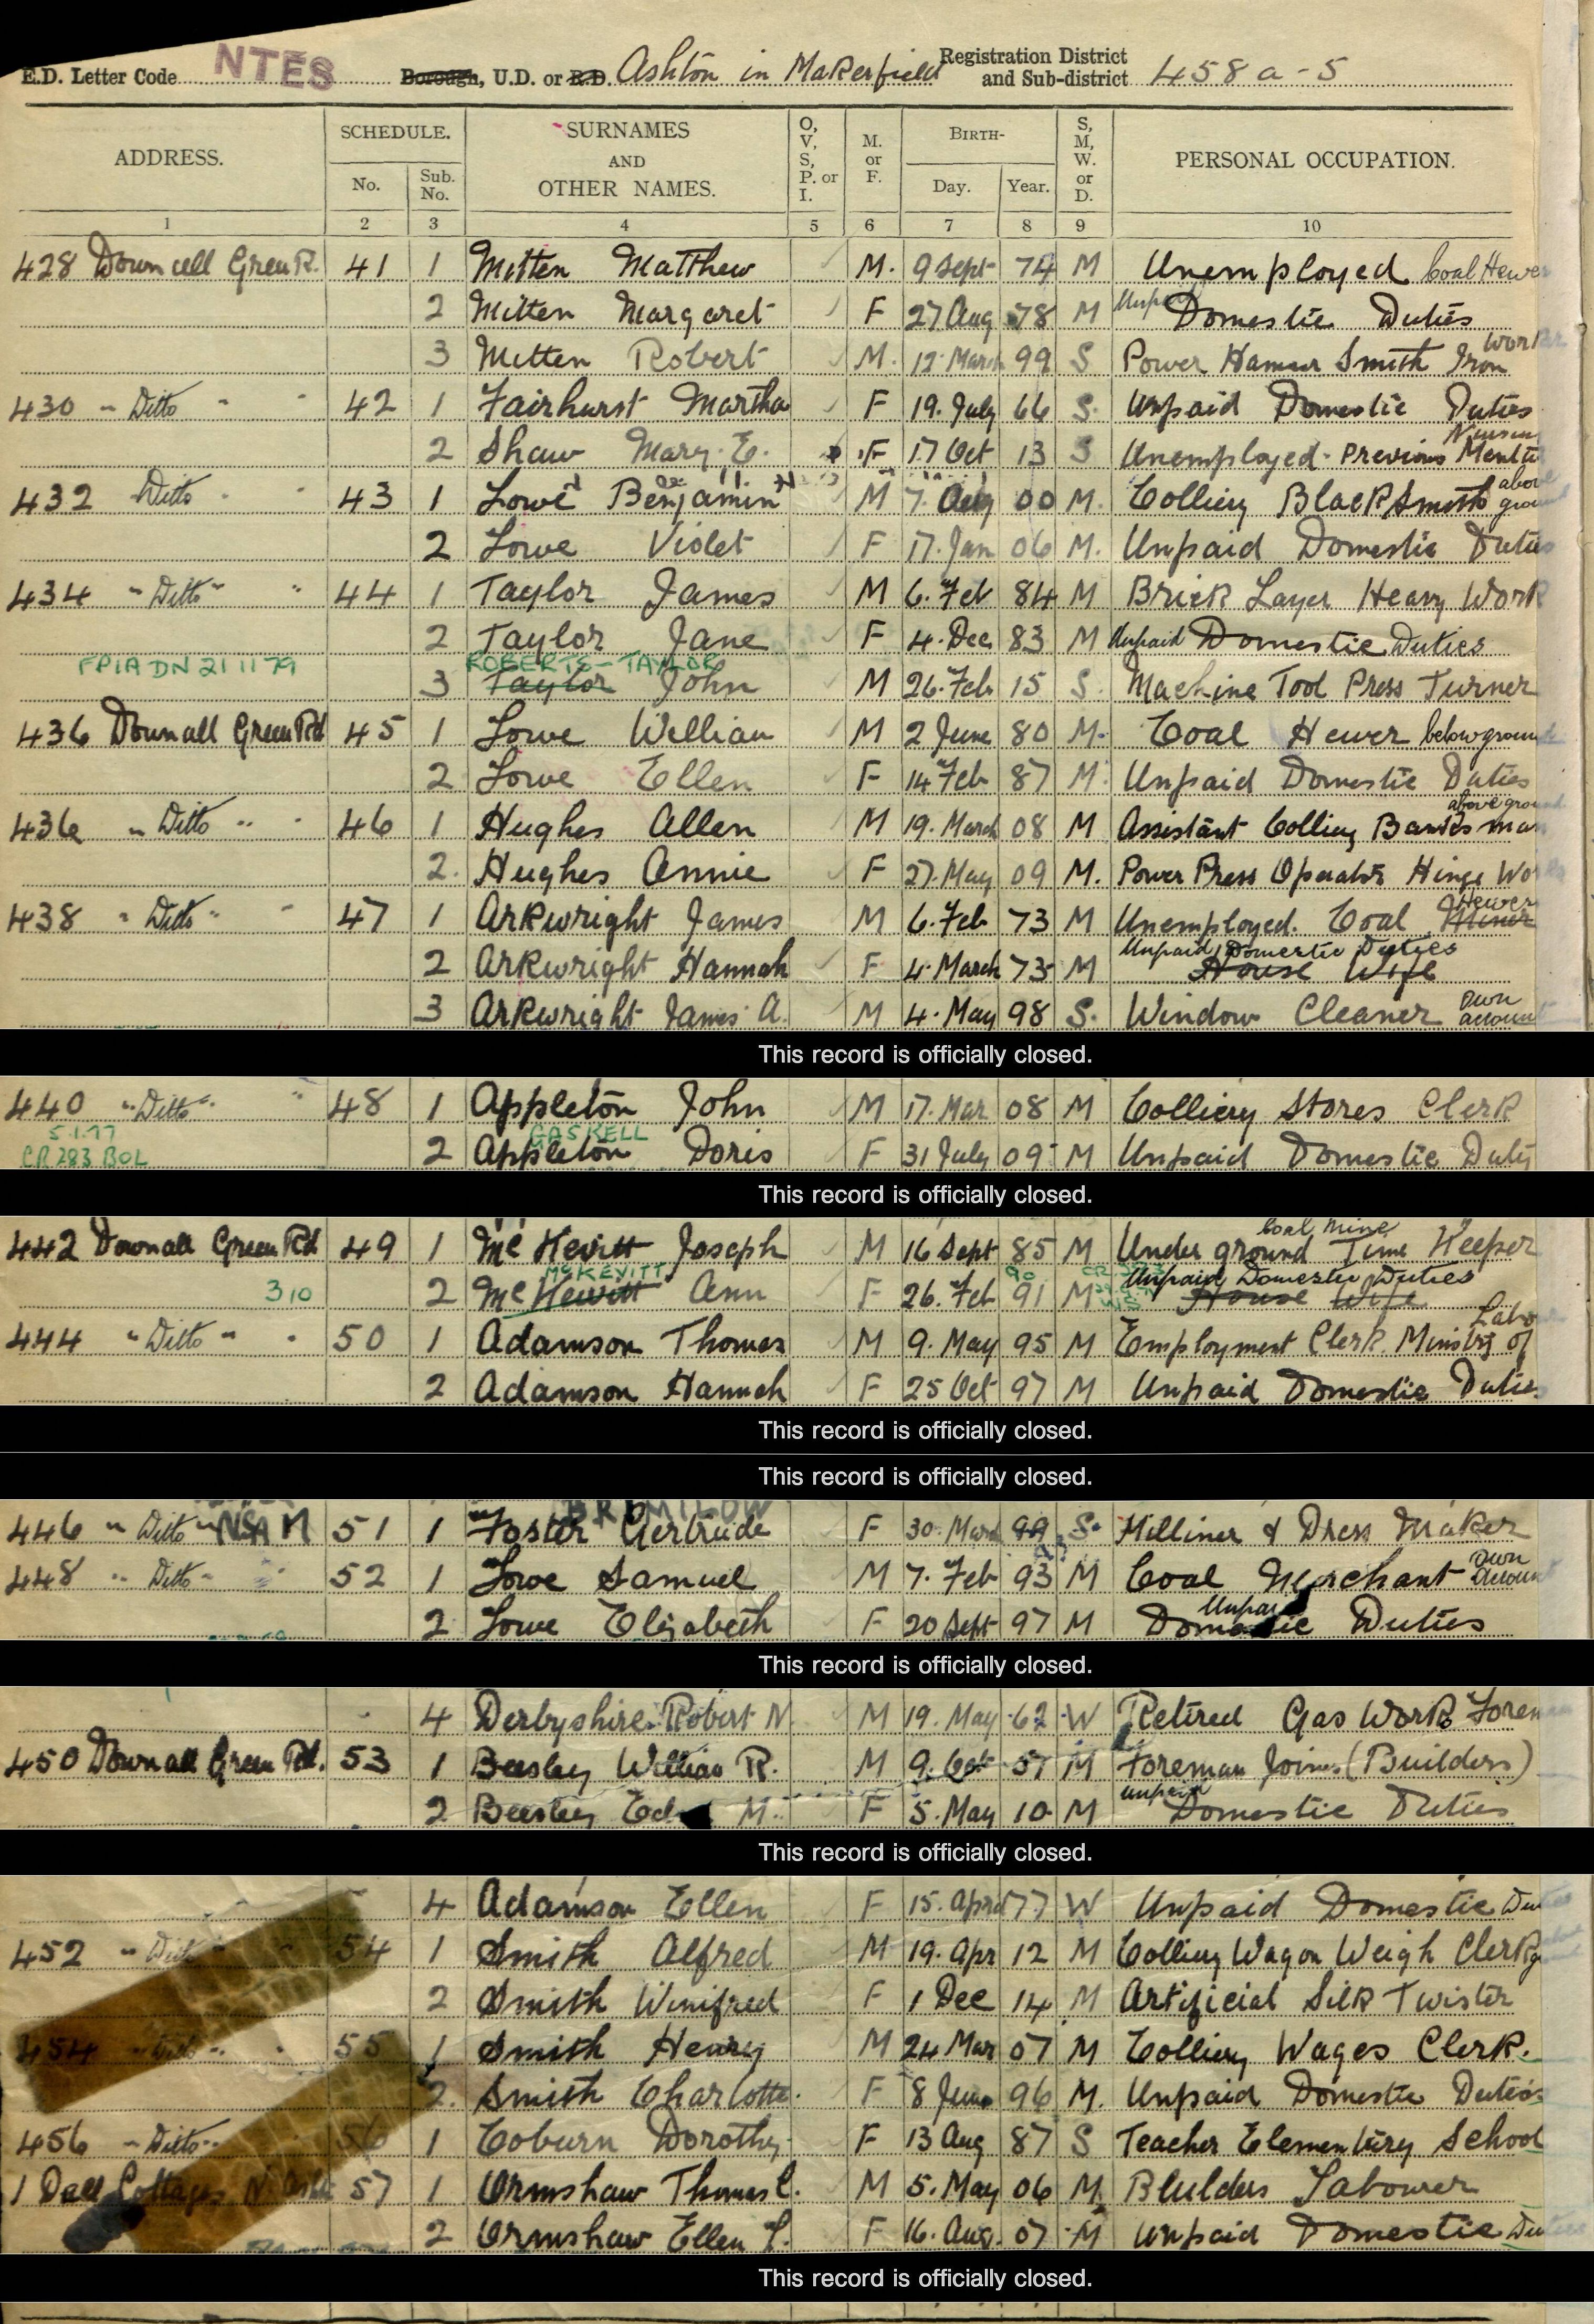 E.D. Letter Code NTES Borough, U.D. or R.D. Ashton in Makerfield Registration District and Sub-district 458a-5
ADDRESS. SCHEDULE. No. Sub. No. SURNAMES AND OTHER NAMES. O, V, S, P. or I. M. or F. BIRTH- Day. Year. S, M, W. or D. PERSONAL OCCUPATION.
1 2 3 4 5 6 7 8 9 10
428 Downall Green R. 41 1 Mitten Matthew M. 9 Sept 74 M Unemployed Coal Hewer
2 Mitten Margaret F 27 Aug 78 M Unpaid Domestic Duties
3 Mitten Robert M. 12 March 99 S Power Hammer Smith Iron Works
430 " Ditto " 42 1 Fairhurst Martha F 19. July 66 S. Unpaid Domestic Duties
2 Shaw Mary. E. F 17 Oct 13 S Unemployed. Previous Nursing
432 Ditto 43 1 Lowe Benjamin M 7. 00 M. Colliery BlackSmith above ground
2 Lowe Violet F 17. Jan 06 M. Unpaid Domestic Duties
434 " Ditto " 44 1 Taylor James M 6. Feb 84 M Brick Layer Heavy Work
2 Taylor Jane F 4. Dec 83 M Unpaid Domestic Duties
FPIA DN 21 11 79 ROBERTS-TAYLOR
3 Taylor John M 26. Feb 15 S. Machine Tool Press Turner
436 Downall Green Rd 45 1 Lowe William M 2 June 80 M. Coal Hewer below ground
2 Lowe Ellen F 14 Feb 87 M. Unpaid Domestic Duties
436a " Ditto " 46 1 Hughes Allen M 19. March 08 M Assistant Colliery Banksman above ground
2. Hughes Annie F 27. May 09 M. Power Press Operator Hinge Works
438 " Ditto " 47 1 Arkwright James M 6. Feb 73 M Unemployed. Coal Miner Hewer
2 Arkwright Hannah F 4. March 73 M House Wife Unpaid Domestic Duties
3 Arkwright James A. M 4. May 98 S. Window Cleaner Own account
This record is officially closed.
440 " Ditto " 48 1 Appleton John M 17. Mar 08 M Colliery Stores Clerk
5.1.77 GASKELL
CR 283 BOL 2 Appleton Doris F 31 July 09 M Unpaid Domestic Duty
This record is officially closed.
442 Downall Green Rd 49 1 Mc Hevitt Joseph M 16 Sept 85 M Under ground Coal Mine Time Keeper
McKEVITT 90
310 2 Mc Hewitt Ann F 26. Feb 91 M House Wife Unpaid Domestic Duties
444 " Ditto " 50 1 Adamson Thomas M 9. May 95 M Employment Clerk. Ministry of Labo
2 Adamson Hannah F 25 Oct 97 M Unpaid Domestic Duties
This record is officially closed.
This record is officially closed.
BRIMILOW
446 " Ditto " NSA M 51 1 Foster Gertrude F 30. Mar 99 S. Milliner & Dress Maker
448 " Ditto " 52 1 Lowe Samuel M 7. Feb 93 M Coal Merchant Own Account
2 Lowe Elizabeth F 20 Sept 97 M Unpaid Domestic Duties
This record is officially closed.
4 Derbyshire Robert N. M 19. May 62 W Retired Gas Work Foreman
450 Downall Green Rd. 53 1 Beesley William R. M 9. Oct 07 M Foreman Joiner (Builders)
2 Beesley M. F 5. May 10 M Unpaid Domestic Duties
This record is officially closed.
4 Adamson Ellen F 15. April 77 W Unpaid Domestic Du
452 " Ditto " 54 1 Smith Alfred M 19. Apr 12 M Colliery Wagon Weigh Clerk
2 Smith Winifred F 1 Dec 14 M Artificial Silk Twister
454 " Ditto " 55 1 Smith Henry M 24 Mar 07 M Colliery Wages Clerk.
2. Smith Charlotte. F 8 June 96 M. Unpaid Domestic Duties
456 " Ditto " 56 1 Coburn Dorothy F 13 Aug 87 S Teacher Elementary School
1 Dell Cottages 57 1 Ormshaw Thomas C. M 5. May 06 M. Bluilders Labourer
2 Ormshaw Ellen F 16. Aug. 07 M Unpaid Domestic Du
This record is officially closed.